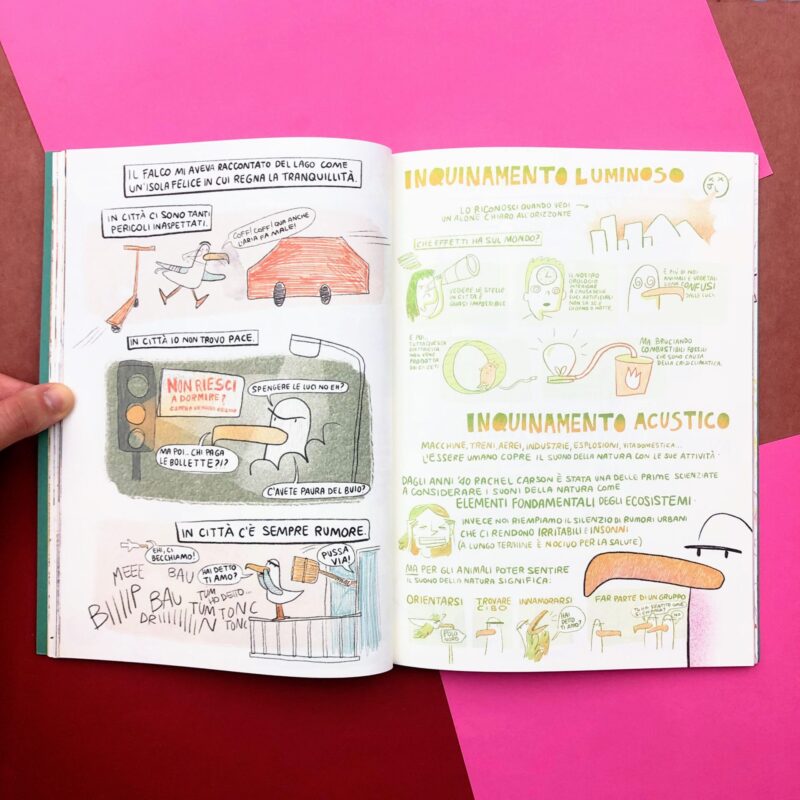 IL FALCO MI AVEVA RACCONTATO DEL LAGO COME
UN'ISOLA FELICE IN CUI REGNA LA TRANQUILLITÀ.
IN CITTÀ CI SONO TANTI
PERICOLI INASPETTATI.
COFF! COFF! QUA ANCHE
L'ARIA FA MALE!
IN CITTÀ IO NON TROVO PACE.
NON RIESCI
A DORMIRE?
SPENGERE LE LUCI NO EH?
MA POI.. CHI PAGA
LE BOLLETTE?!?
C'AVETE PAURA DEL BUIO?
IN CITTÀ C'È SEMPRE RUMORE.
EHI, CI
BECCHIAMO!
MEEE
BAU
BIIIIP
BAU
DRIIIIIIIIN
TUM
TUM
TONC
TONC
HAI DETTO
TI AMO?
HO DETTO...
PUSSA
VIA!
INQUINAMENTO LUMINOSO
LO RICONOSCI QUANDO VEDI
UN ALONE CHIARO ALL'ORIZZONTE
CHE EFFETTI HA SUL MONDO?
VEDERE LE STELLE
IN CITTÀ È
QUASI IMPOSSIBILE
IL NOSTRO
OROLOGIO
INTERNO
A CAUSA DELLE
LUCI ARTIFICIALI
NON SA SE È
GIORNO O NOTTE.
E PIÙ DI NOI
ANIMALI E VEGETALI
SONO CONFUSI
DALLE LUCI.
E POI..
TUTTA QUESTA
ELETTRICITÀ
NON VIENE
PRODOTTA
DAI CRICETI
MA BRUCIANDO
COMBUSTIBILI FOSSILI
CHE SONO CAUSA
DELLA CRISI CLIMATICA.
INQUINAMENTO ACUSTICO
MACCHINE, TRENI, AEREI, INDUSTRIE, ESPLOSIONI, VITA DOMESTICA...
L'ESSERE UMANO COPRE IL SUONO DELLA NATURA CON LE SUE ATTIVITÀ.
DAGLI ANNI '40 RACHEL CARSON È STATA UNA DELLE PRIME SCIENZIATE
A CONSIDERARE I SUONI DELLA NATURA COME
ELEMENTI FONDAMENTALI DEGLI ECOSISTEMI.
INVECE NOI RIEMPIAMO IL SILENZIO DI RUMORI URBANI
CHE CI RENDONO IRRITABILI E INSONNI
(A LUNGO TERMINE È NOCIVO PER LA SALUTE)
MA PER GLI ANIMALI POTER SENTIRE
IL SUONO DELLA NATURA SIGNIFICA:
ORIENTARSI
TROVARE
CIBO
INNAMORARSI
FAR PARTE DI UN GRUPPO
POLO
NORD
HAI
DETTO
TI AMO?